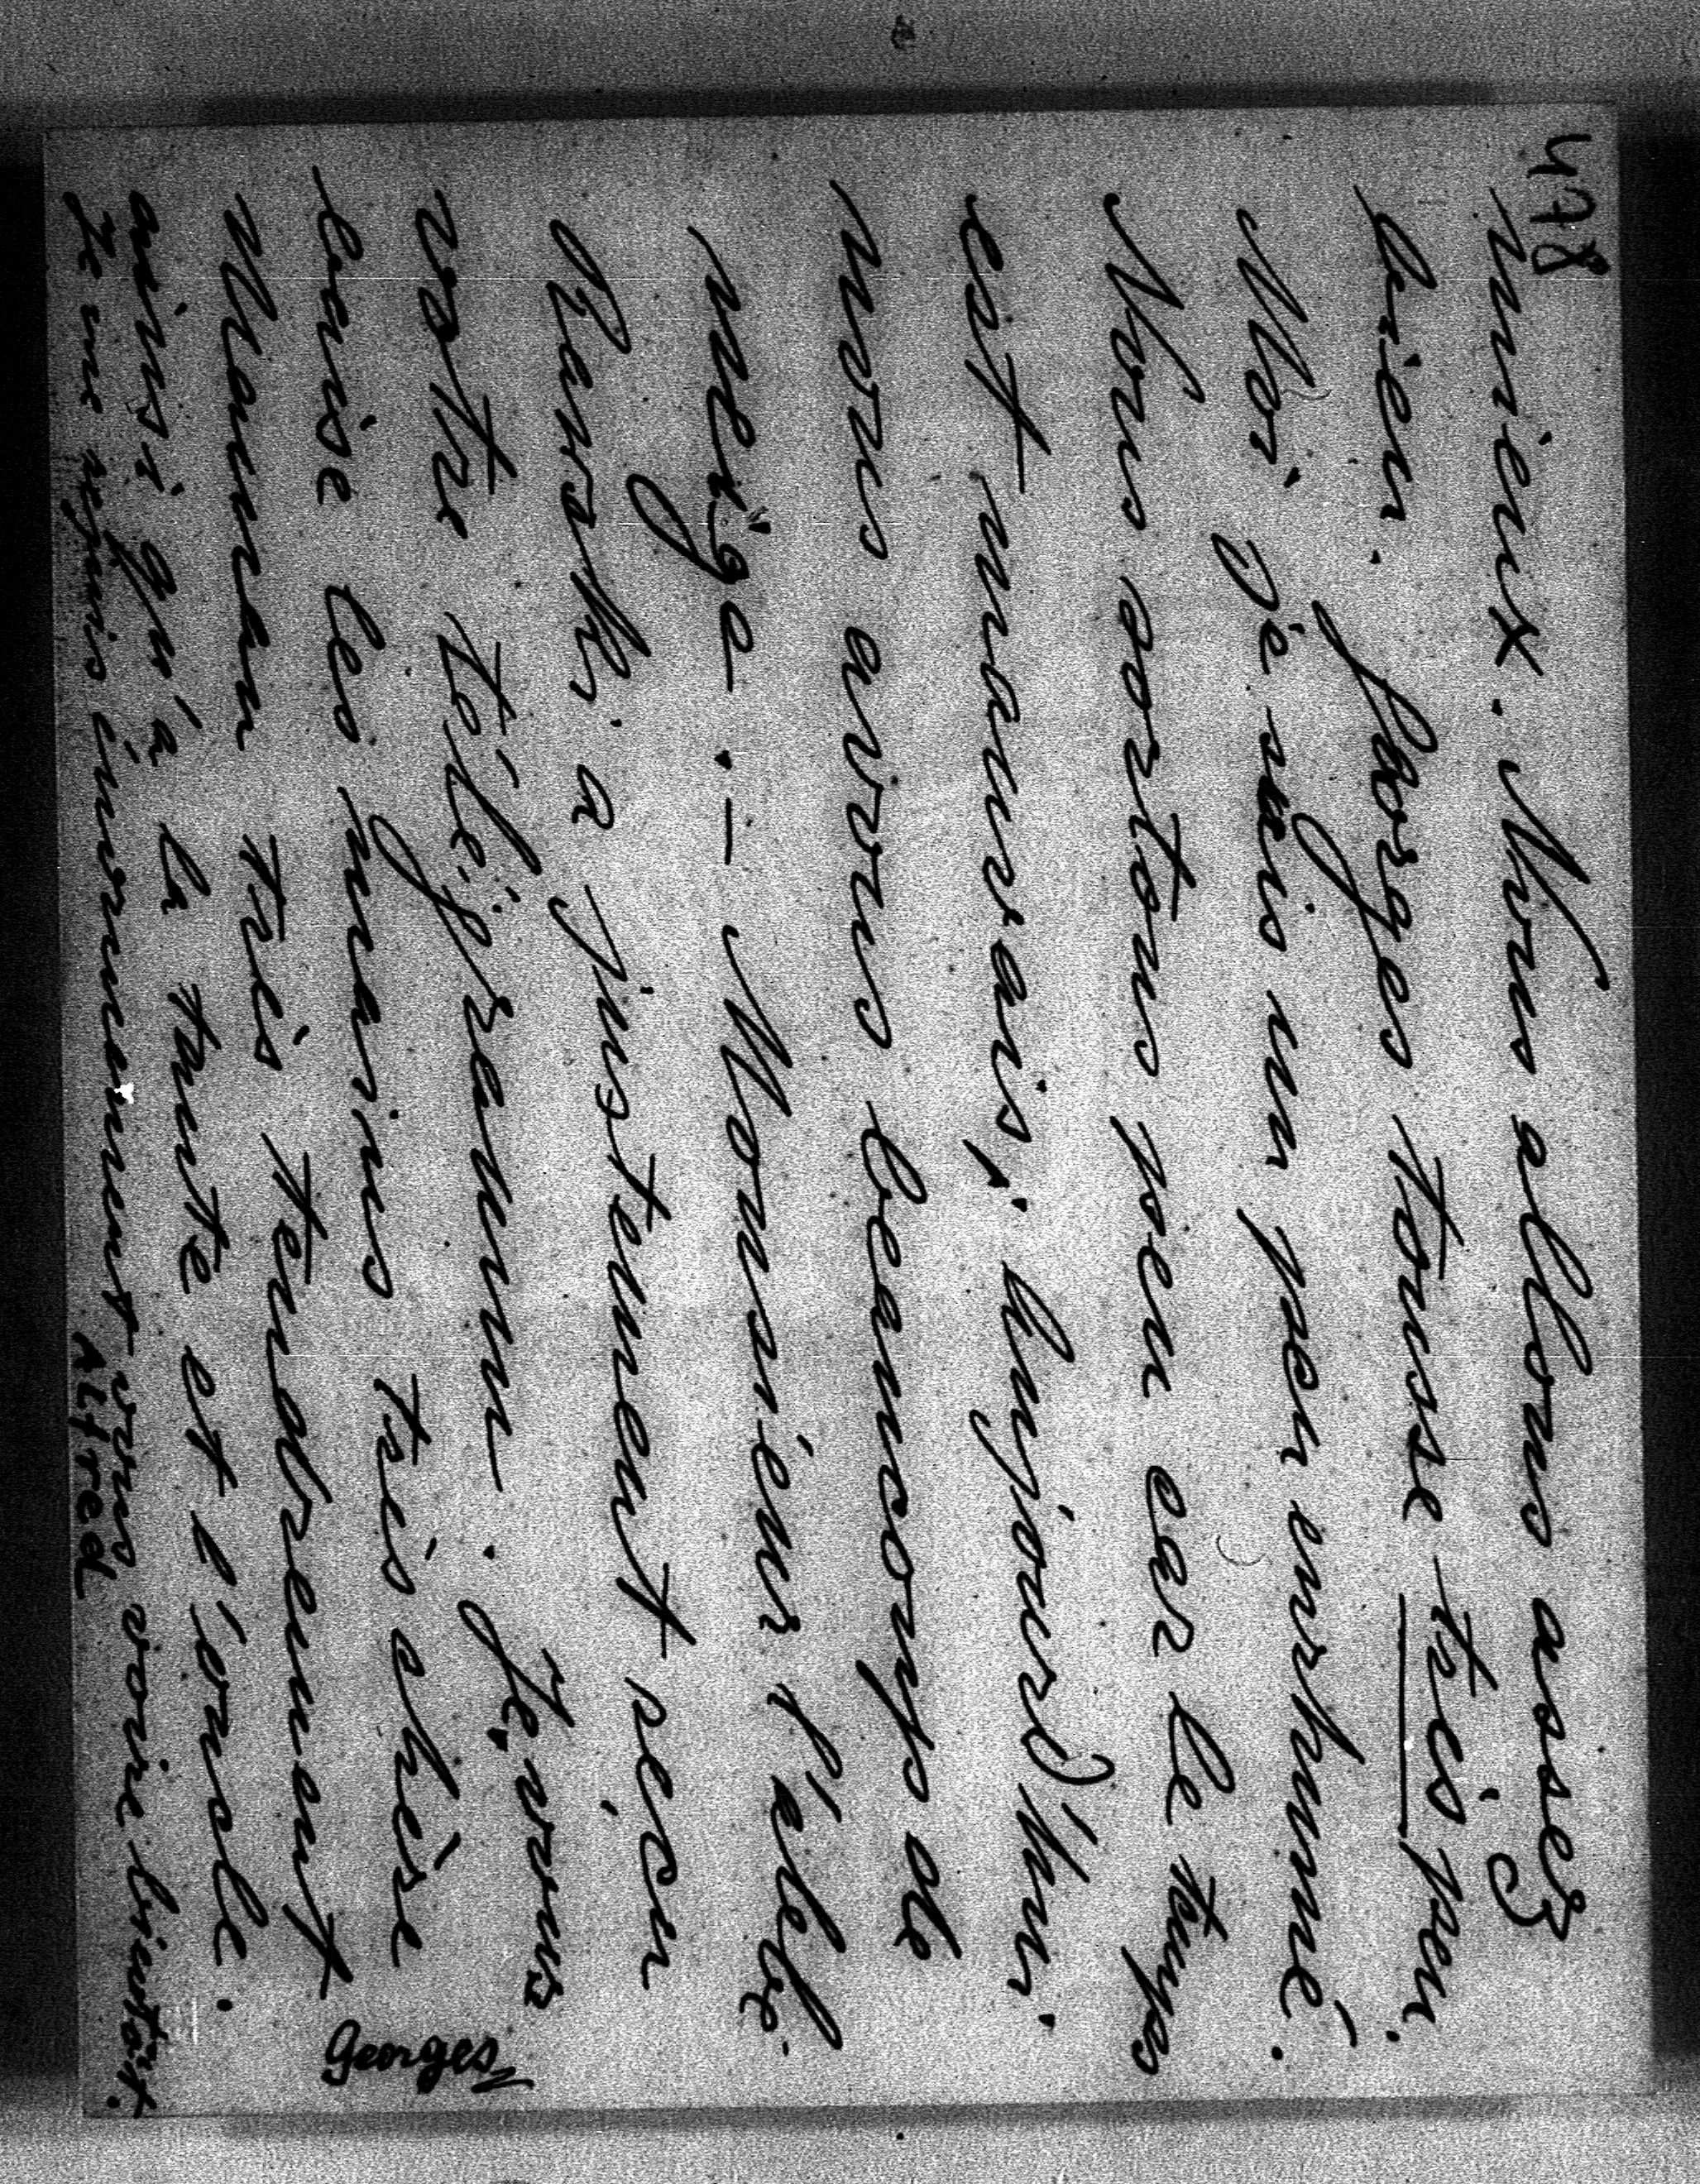 478
mieux. Nous allons assez
bien. Georges tousse très peu.
Moi je suis un peu enrhumé.
Nous sortons peu car le temps
est mauvais; aujourd'hui
nous avons beaucoup de
neige. — Monsieur l'abbé
a justement reçu
votre télégramme. Je vous
baise les mains très chère
Maman très tendrement
ainsi qu'à la tante et l'oncle.
Georges
Je me réjouis énormément vous voire bientôt.
Alfred